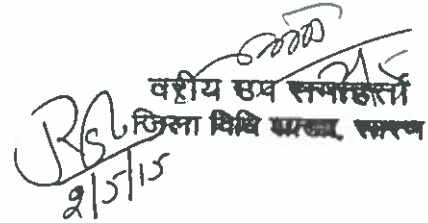 वरीय उप समाहर्ता
जिला विधि शाखा, सारण
2/5/15